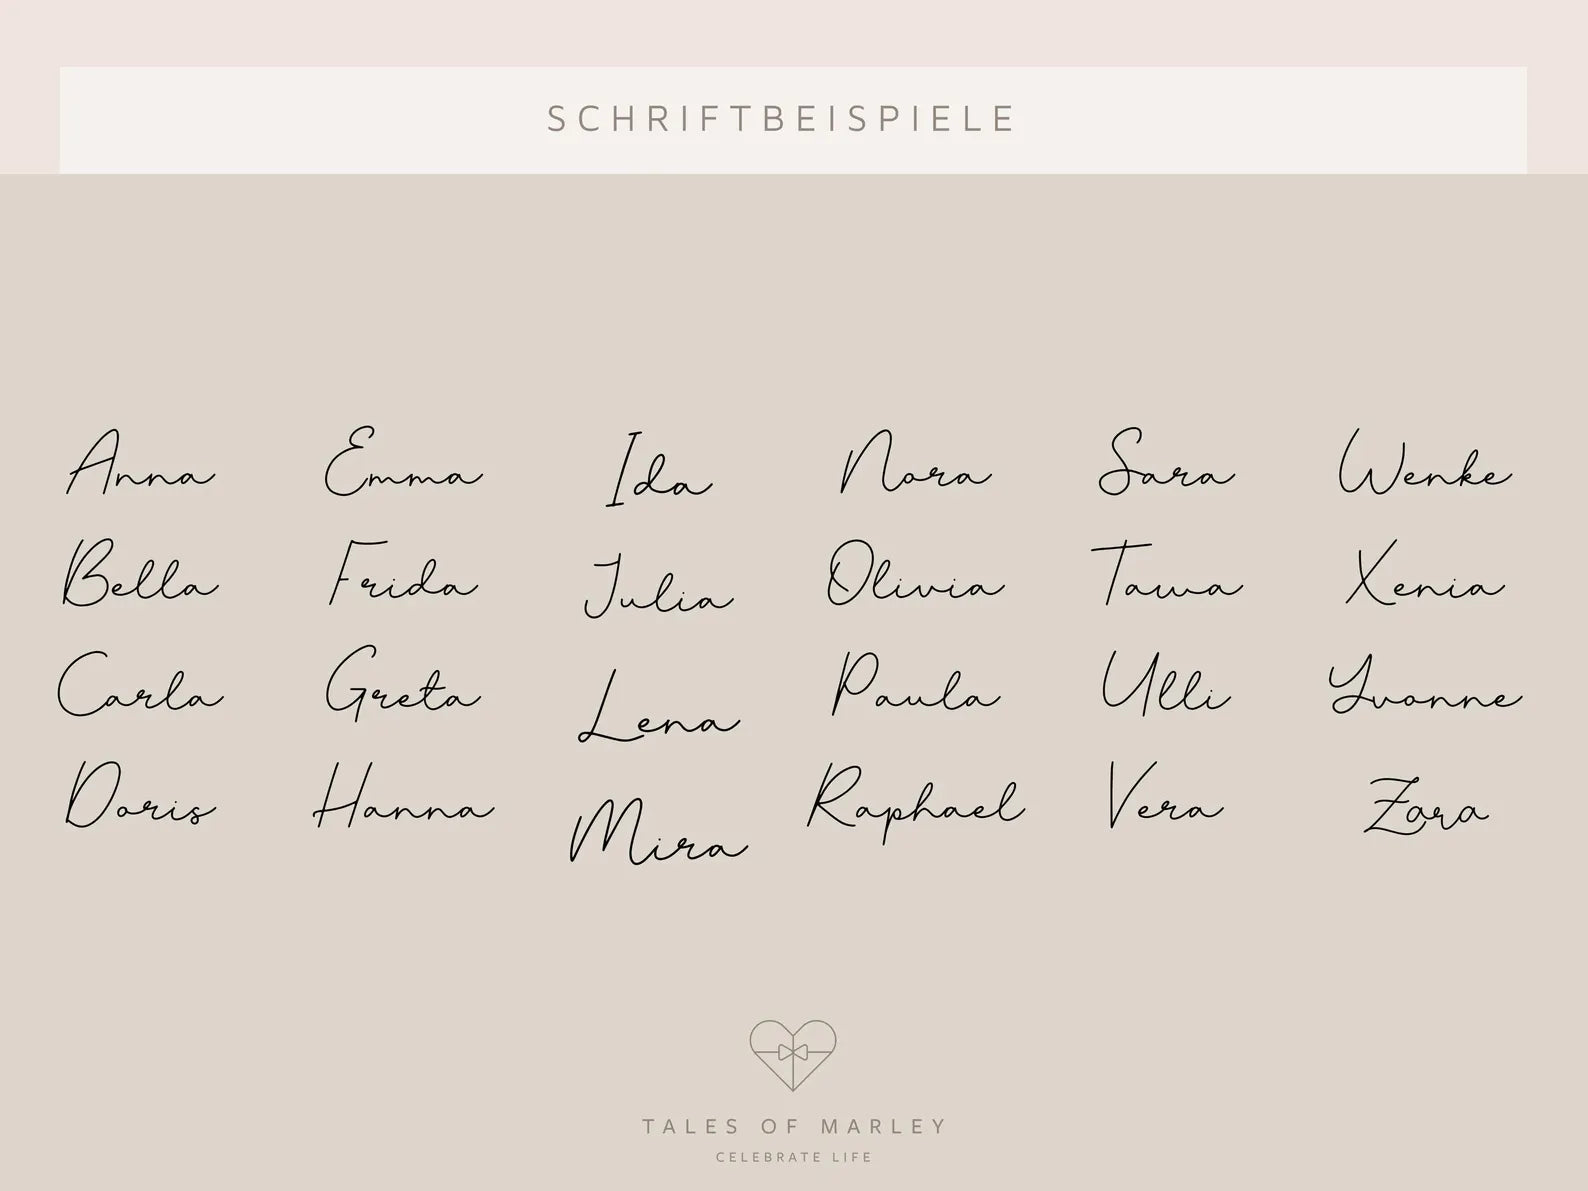 SCHRIFTBEISPIELE
Anna
Bella
Carla
Doris
Emma
Frida
Greta
Hanna
Ida
Julia
Lena
Mira
Nora
Olivia
Paula
Raphael
Sara
Tawa
Ulli
Vera
Wenke
Xenia
Yvonne
Zara
TALES OF MARLEY
CELEBRATE LIFE